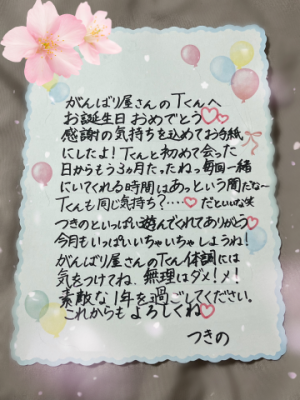 がんばり屋さんのTくんへ
お誕生日おめでとう♡
感謝の気持ちを込めてお手紙
にしたよ！Tくんと初めて会った
日からもう3ヵ月たったねっ毎回一緒
にいてくれる時間はあっという間だな〜
Tくんも同じ気持ち？････♡だといいな笑
つきのといっぱい遊んでくれてありがとう♡
今月もいっぱいいちゃいちゃしようね！
がんばり屋さんのTくん体調には
気をつけてね、無理はダメ！メ！
素敵な1年を過ごしてください。
これからもよろしくね♡
つきの